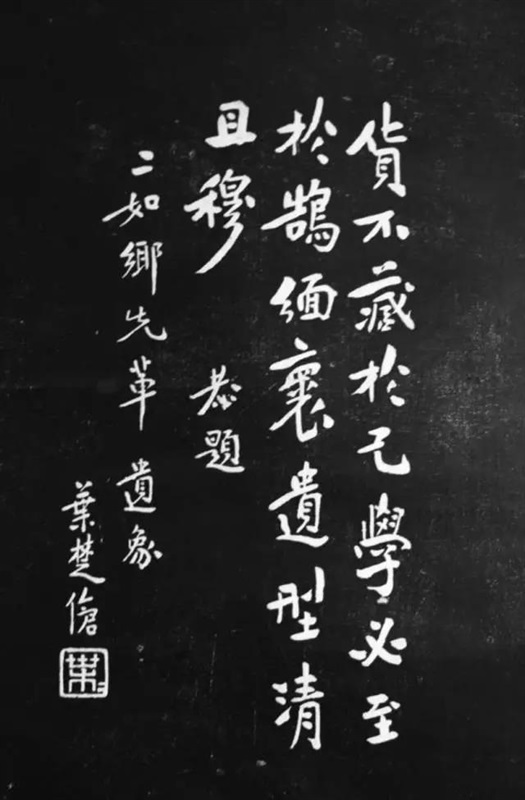 貨不藏於己學必至
於鵠緬褱遺型清
且穆
恭題
二如鄉先輩遺象
葉楚傖
葉